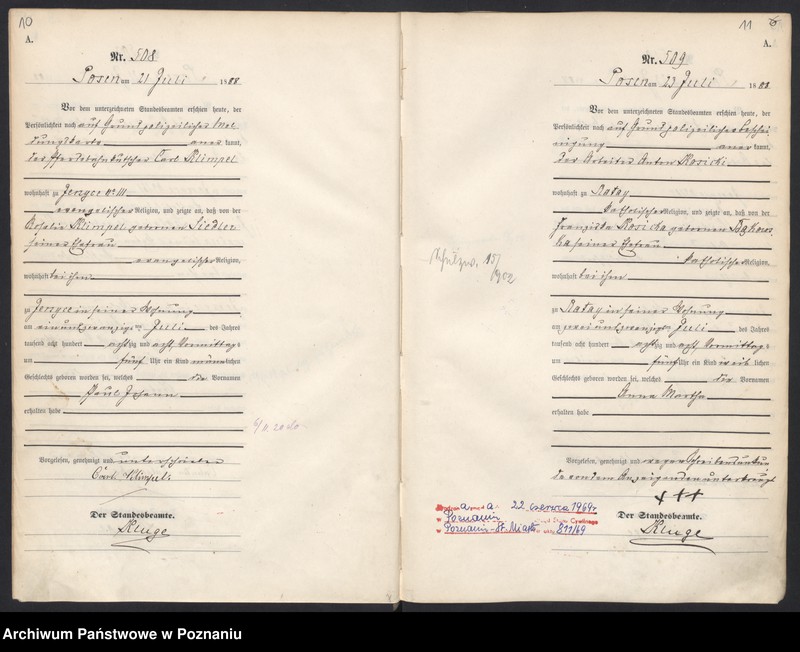 10
A.
Nr. 508
Posen am 21 Juli 1888
Vor dem unterzeichneten Standesbeamten erschien heute, der
Persönlichkeit nach auf Grund polizeilicher Mel-
dungskarte anerkannt,
der Pferdebahnkutscher Carl Klimpel
wohnhaft zu Jersyce No. 111
evangelischer Religion, und zeigte an, daß von der
Rosalie Klimpel geborenen Siedler
seiner Ehefrau
evangelischer Religion,
wohnhaft bei ihm
zu Jersyce in seiner Wohnung
am ein und zwanzigten Juli des Jahres
tausend acht hundert achtzig und acht Vormittags
um fünf Uhr ein Kind männlichen
Geschlechts geboren worden sei, welches die Vornamen
Paul Johann
erhalten habe
Vorgelesen, genehmigt und unterschrieben
Carl Klimpel
Der Standesbeamte.
Kluge
11
6
A.
Nr. 509
Posen am 23 Juli 1888
Vor dem unterzeichneten Standesbeamten erschien heute, der
Persönlichkeit nach auf Grund polizeilicher Beschei
nigung anerkannt,
der Arbeiter Anton Kosicki
wohnhaft zu Ratay
katholischer Religion, und zeigte an, daß von der
Franziska Kosicka geborenen
ka seiner Ehefrau
katholischer Religion,
wohnhaft bei ihm
zu Ratay in seiner Wohnung
am zwei und zwanzigten Juli des Jahres
tausend acht hundert achtzig und acht Vormittags
um fünf Uhr ein Kind weiblichen
Geschlechts geboren worden sei, welches die Vornamen
Anna Martha
erhalten habe
Vorgelesen, genehmigt und wegen Schreibensunkun
de von dem Anzeigenden unterkreuzt
+++
Der Standesbeamte.
Kluge
15/
1902
a a 22 czerwca 1969r
w Poznaniu
w Poznaniu-St. Miasto 811/69
Archiwum Państwowe w Poznaniu